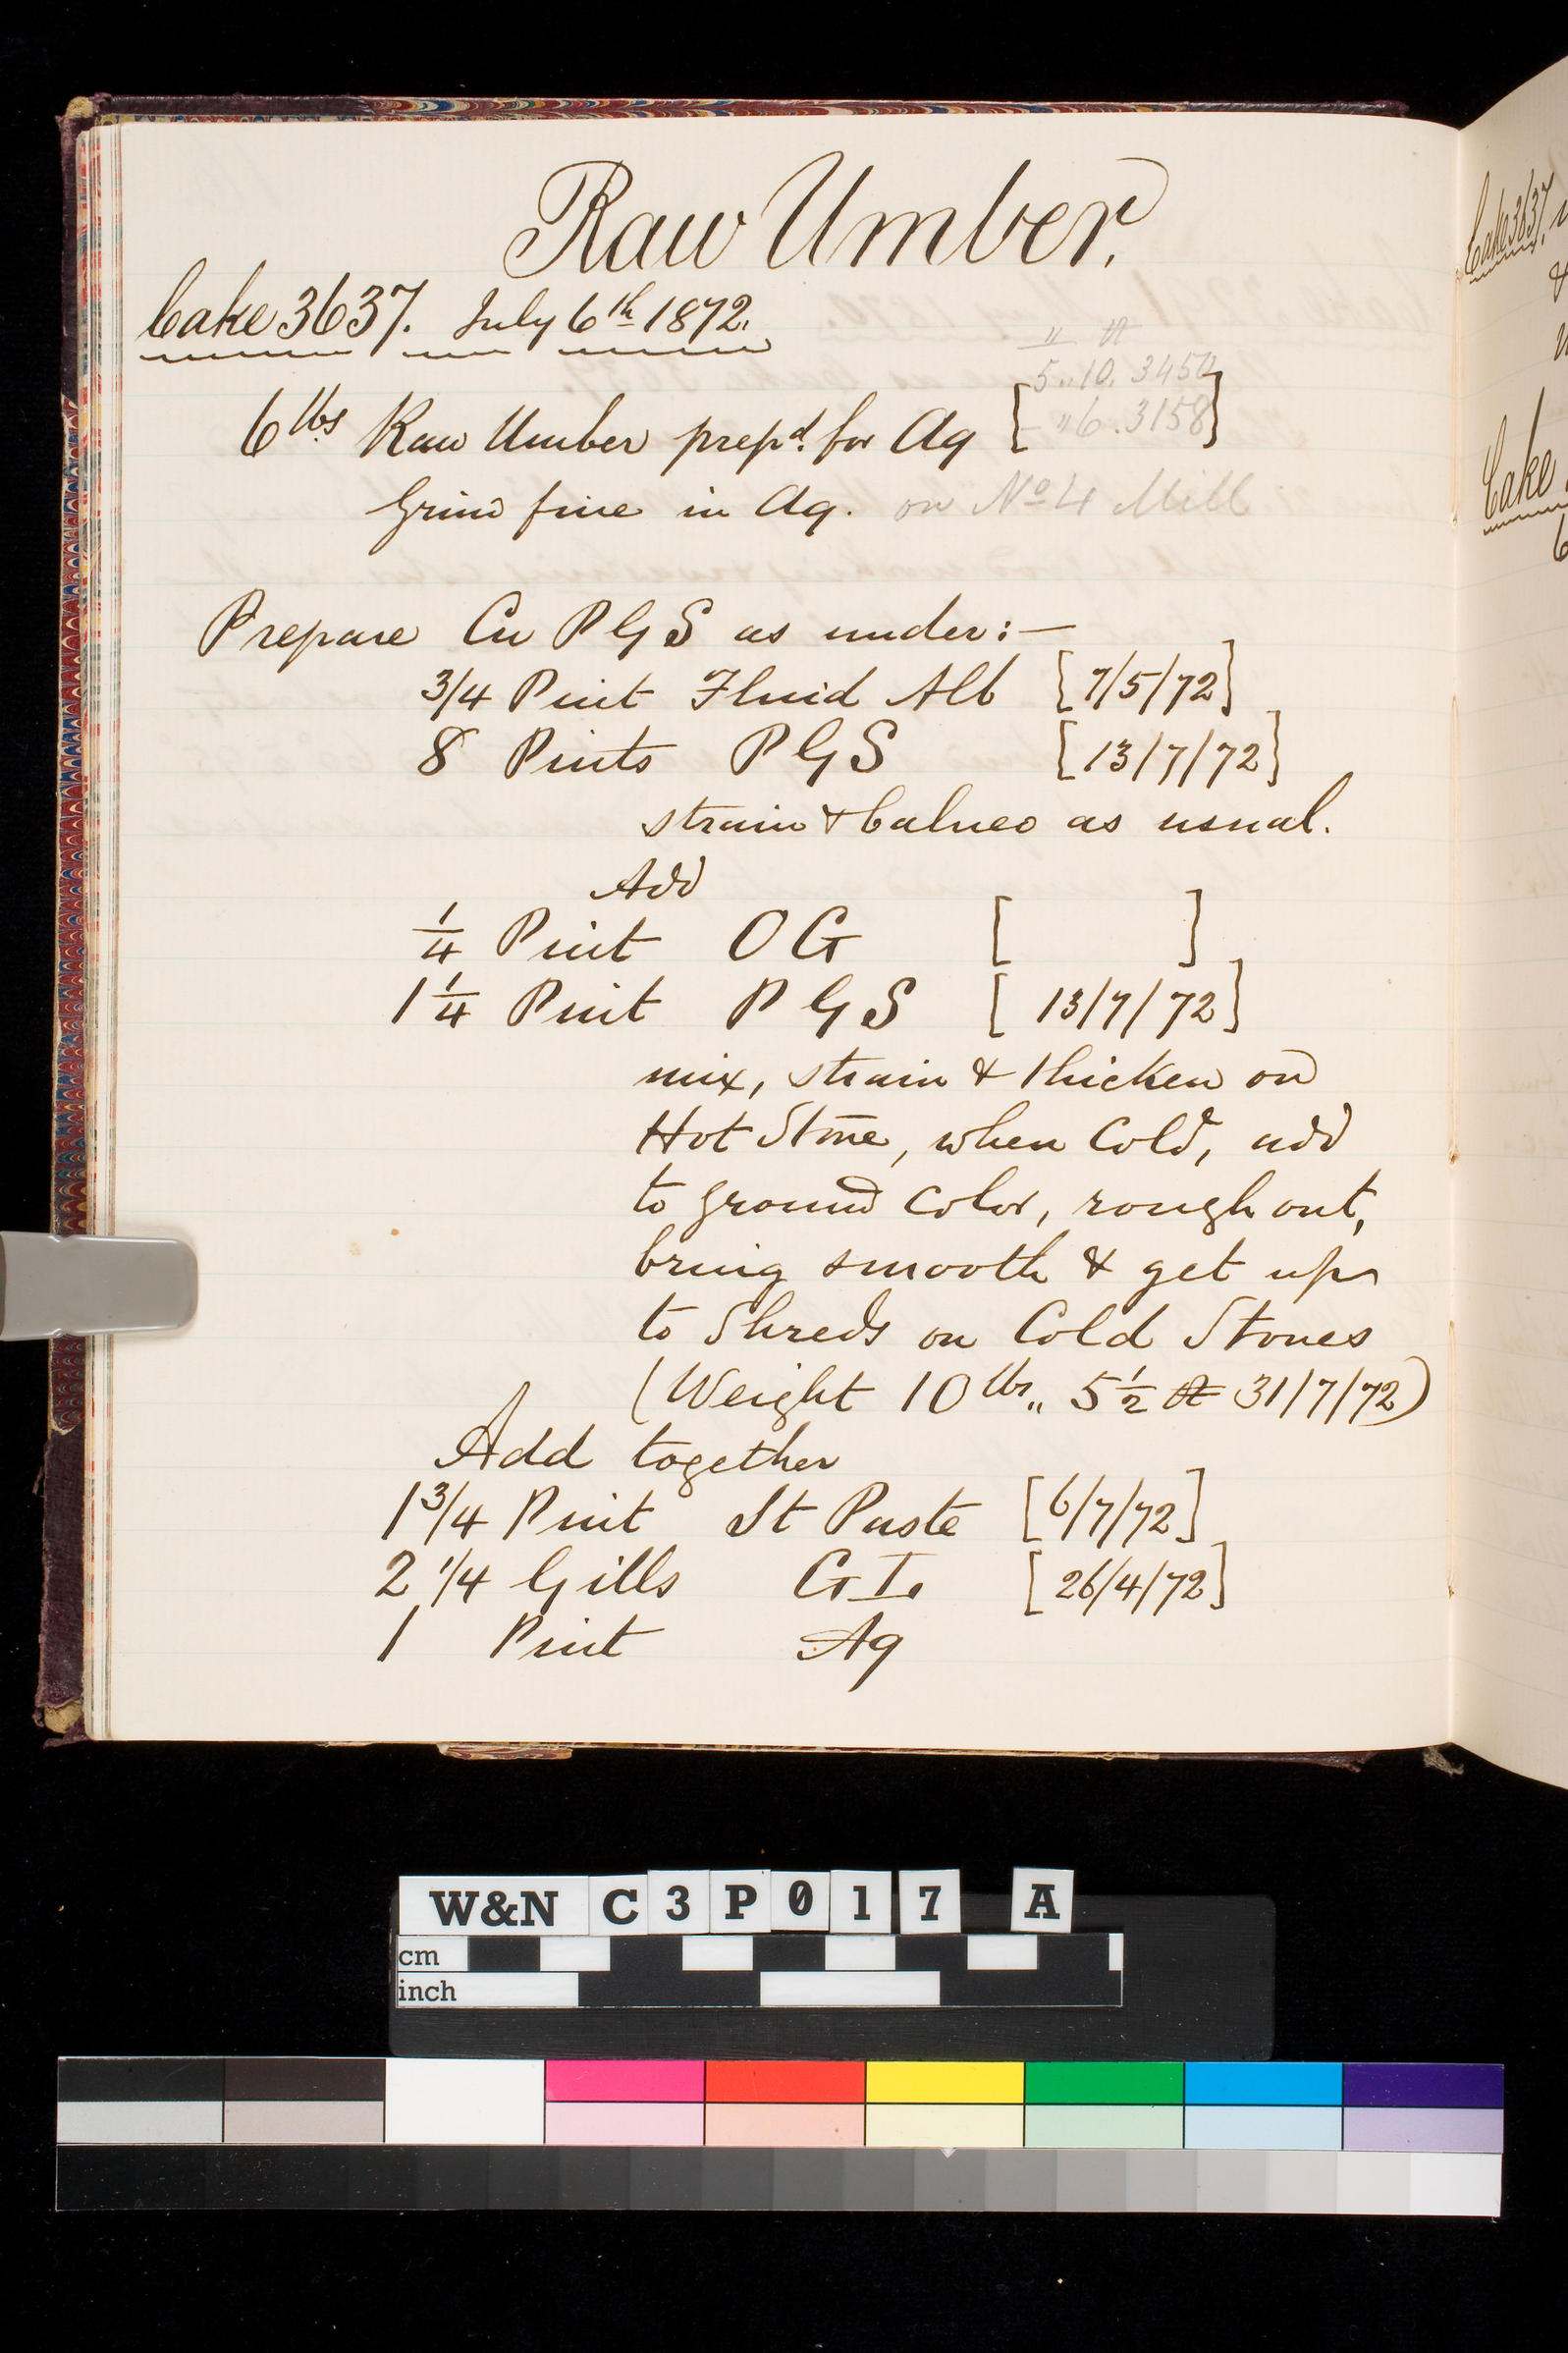 Raw Umber.
Cake 3637. July 6th 1872.
" ℔
5 " 10. 3450
6 lbs Raw Umber prepd. for Aq [ " 6. 3158]
Grind fine in Aq. on No 4 Mill
Prepare Cu P G S as under:—
3/4 Pint Fluid Alb [7/5/72]
8 Pints P G S [13/7/72]
strain & balneo as usual.
Add
1/4 Pint O G [ ]
1 1/4 Pint P G S [13/7/72]
mix, strain & thicken on
Hot Stone, when Cold, add
to ground color, rough out,
bring smooth & get up
to Shreds on Cold Stones
(Weight 10 lbs,, 5 1/2 31/7/72)
Add together
1 3/4 Pint St Paste [6/7/72]
2 1/4 Gills G I. [26/4/72]
1 Pint Aq
Cake 3637.
&
Cake
6
W&N C3P017 A
cm
inch